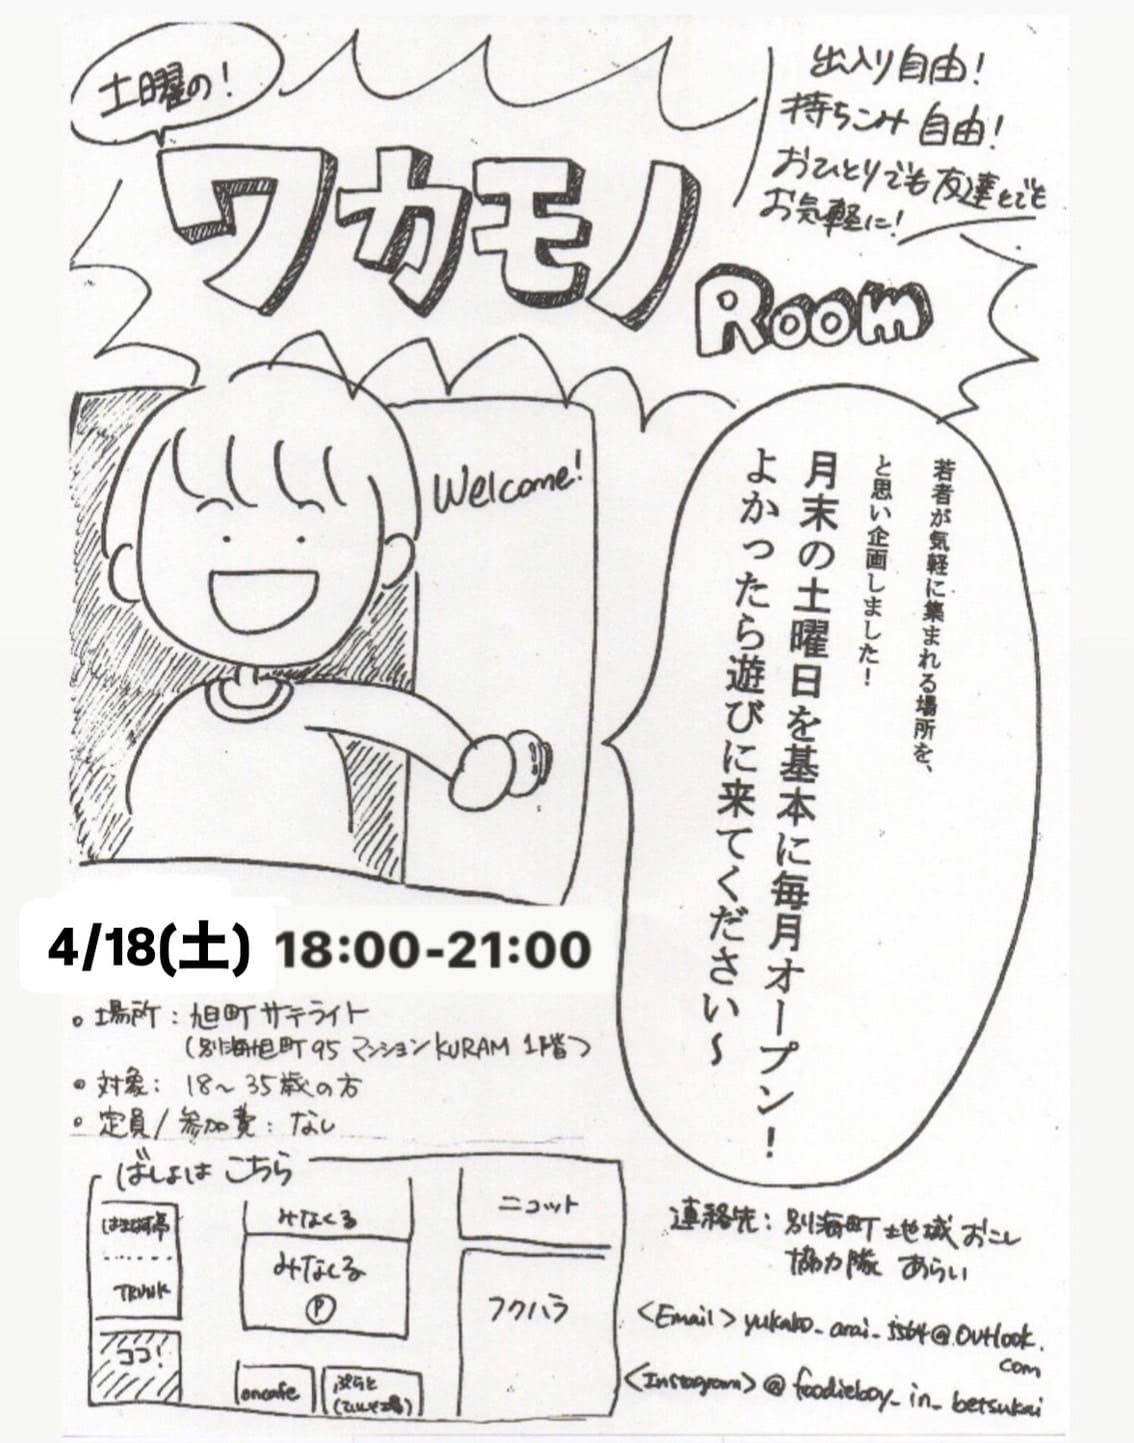 土曜の!
ワカモノ
Room
出入り自由!
持ちこみ自由!
おひとりでも友達とでも
お気軽に!
Welcome!
若者が気軽に集まれる場所を、
と思い企画しました!
月末の土曜日を基本に毎月オープン!
よかったら遊びに来てください〜
4/18(土) 18:00-21:00
場所: 旭町サテライト
(別海旭町95 マンションKURAM 1階)
対象: 18〜35歳の方
定員/参加費: なし
ばしょはこちら
みなくる
ニコット
TRUNK
みなくる
P
フクハラ
ココ!
oncafe
ぷらと
連絡先: 別海町地域おこし
協力隊 あらい
<Email> yukako_arai_5564@outlook.
com
<Instagram> @foodieboy_in_betsukai